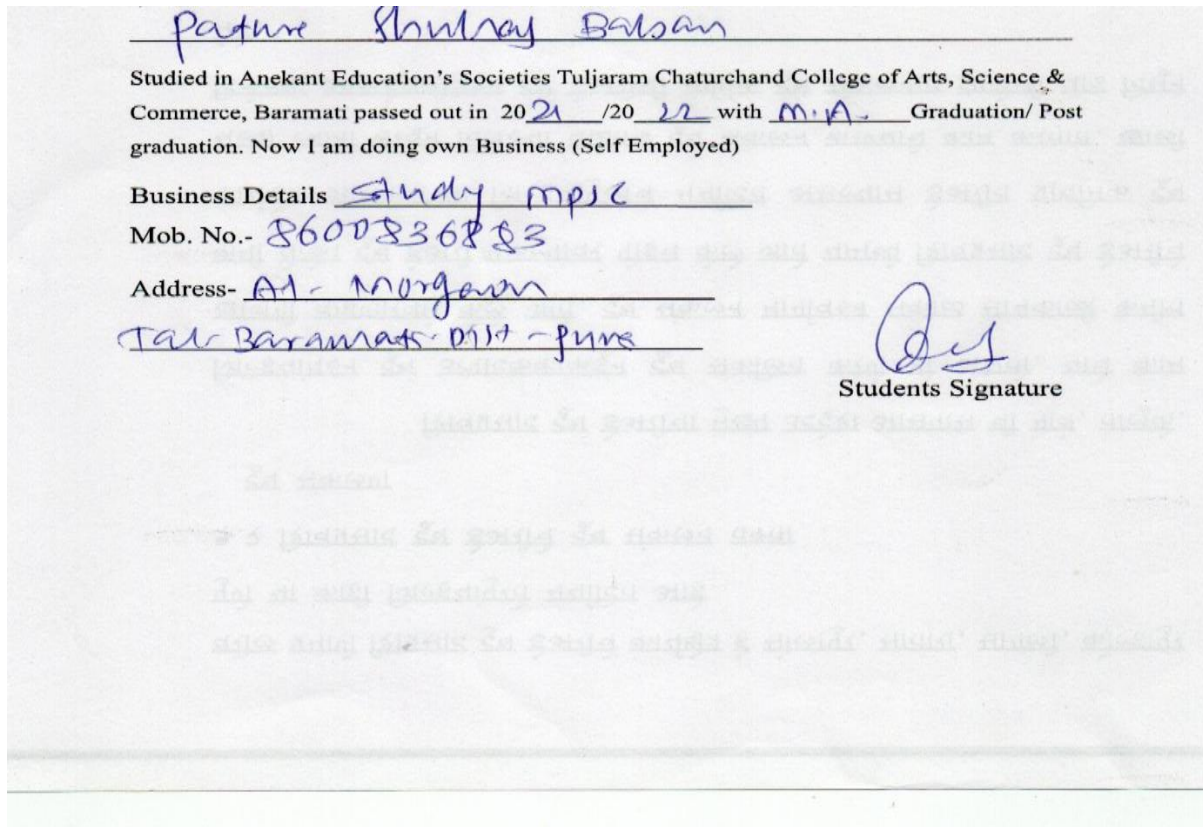 Pature Shulraj Balsan
Studied in Anekant Education's Societies Tuljaram Chaturchand College of Arts, Science &
Commerce, Baramati passed out in 2021/2022 with M.A. Graduation/ Post
graduation. Now I am doing own Business (Self Employed)
Business Details Study mpsc
Mob. No.- 8600836883
Address- At - Morgaon
Tal- Baramati- Dist - pune
Students Signature